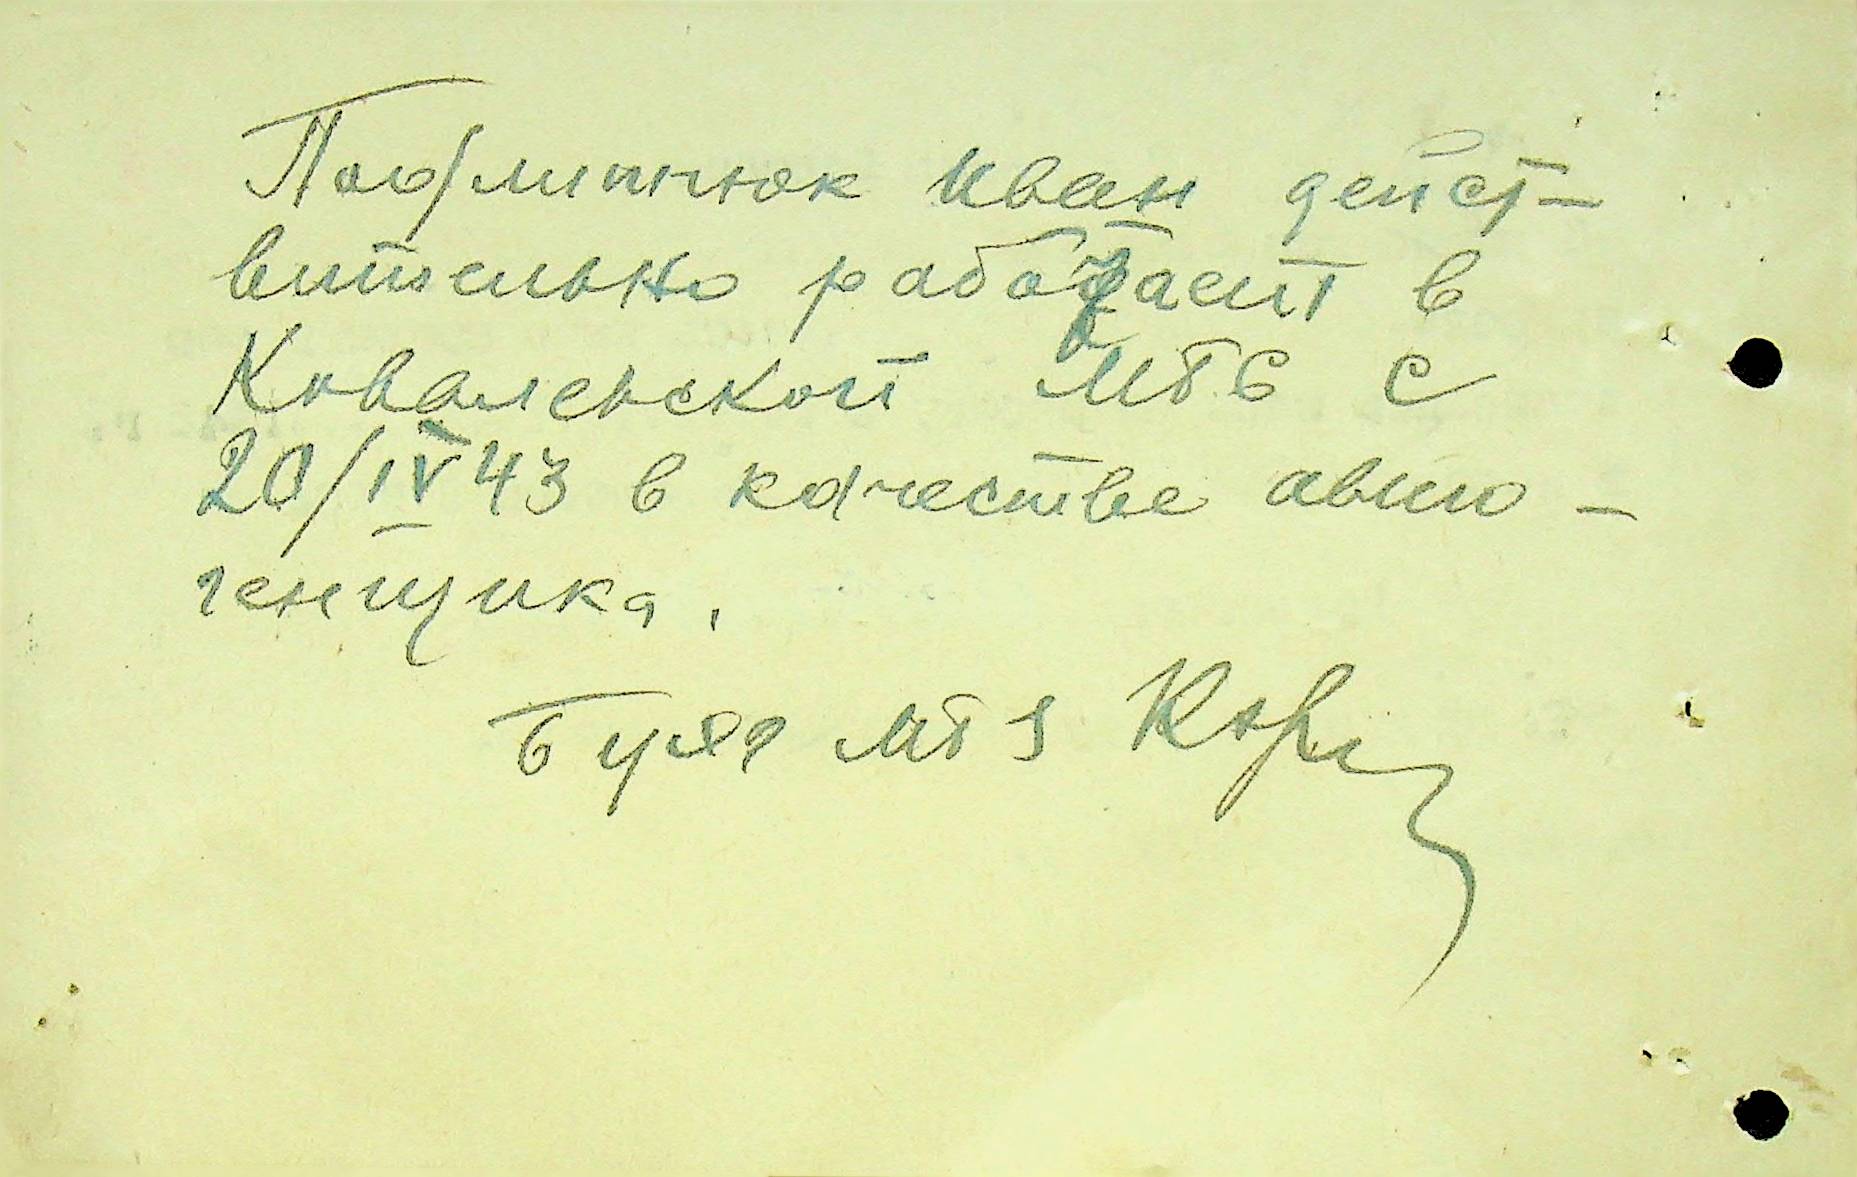 Подлипнюк Иван дейст-
вительно работает в
Коваленской МТС с
20/IV 43 в качестве авто-
генщика.
Бух МТS